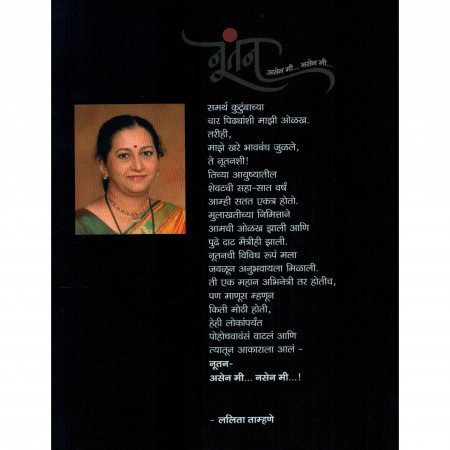 नूतन
असेन मी... नसेन मी...
समर्थ कुटुंबाच्या
चार पिढ्यांशी माझी ओळख.
तरीही,
माझे खरे भावबंध जुळले,
ते नूतनशी!
तिच्या आयुष्यातील
शेवटची सहा-सात वर्षं
आम्ही सतत एकत्र होतो.
मुलाखतीच्या निमित्ताने
आमची ओळख झाली आणि
पुढे दाट मैत्रीही झाली.
नूतनची विविध रूपं मला
जवळून अनुभवायला मिळाली.
ती एक महान अभिनेत्री तर होतीच,
पण माणूस म्हणून
किती मोठी होती,
हेही लोकांपर्यंत
पोहोचवावंसं वाटलं आणि
त्यातून आकाराला आलं -
नूतन-
असेन मी... नसेन मी...!
- ललिता ताम्हणे